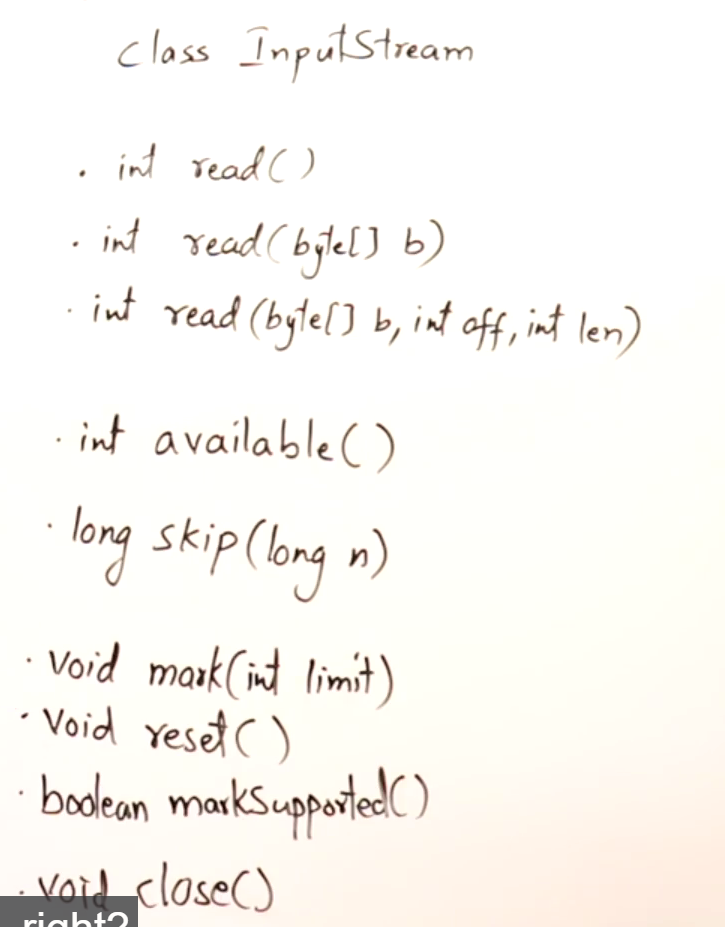 class InputStream
. int read()
. int read(byte[] b)
. int read(byte[] b, int off, int len)
. int available()
. long skip(long n)
. void mark(int limit)
. void reset()
. boolean markSupported()
. void close()
right?